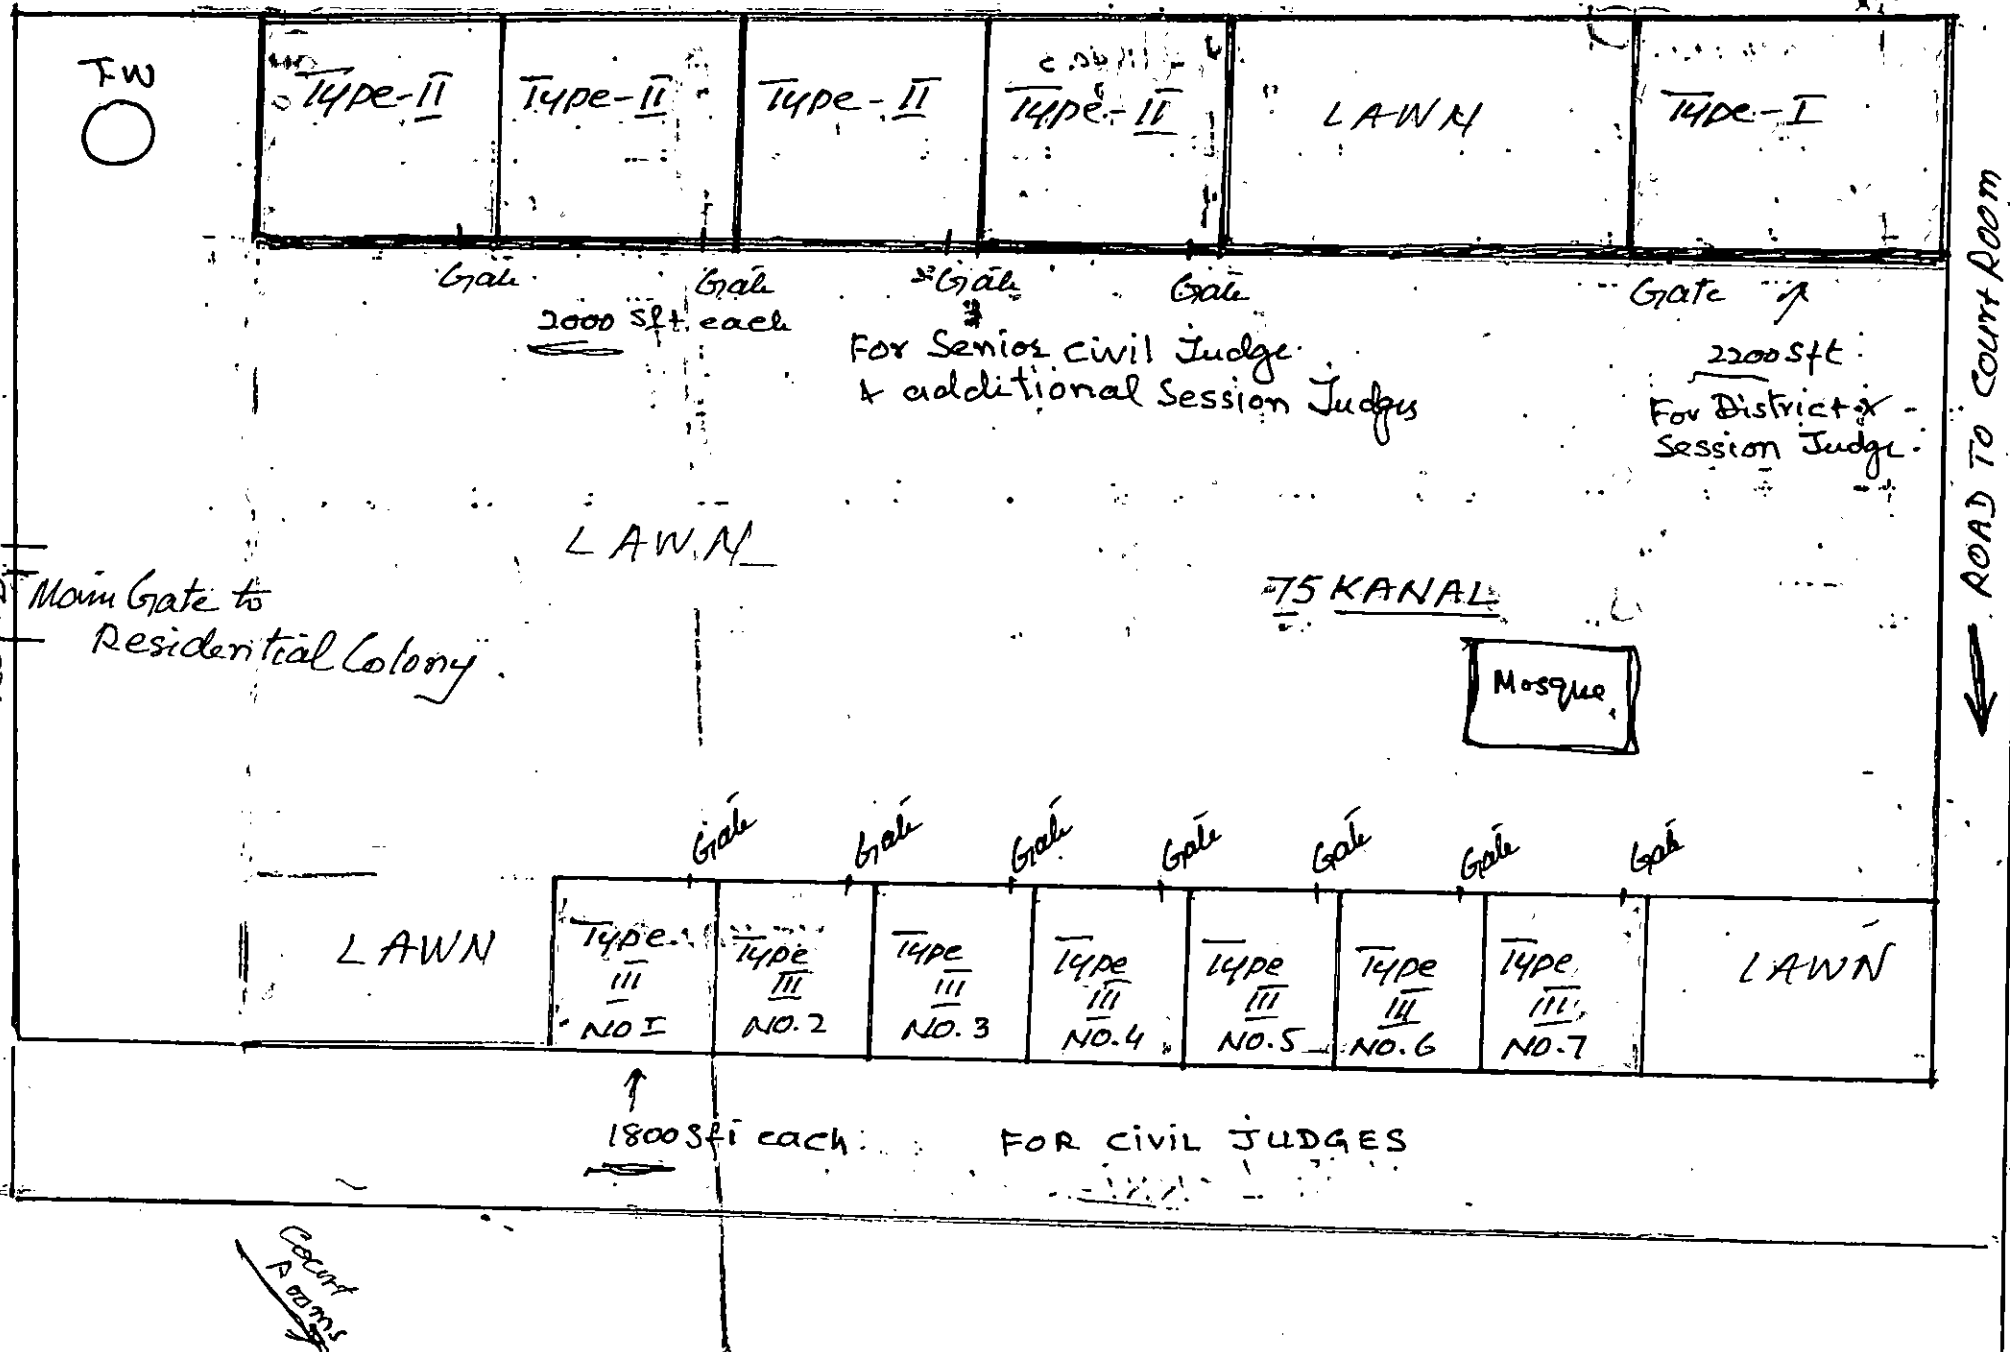 TW
Type-II
Type-II
Type-II
Type-II
LAWN
Type-I
Gate
Gate
Gate
Gate
Gate
2000 Sft each
For Senior civil Judge
& additional Session Judges
2200 Sft
For District &
Session Judge
ROAD TO Court ROOM
LAWN
75 KANAL
Main Gate to
Residential Colony
Mosque
Gate
Gate
Gate
Gate
Gate
Gate
Gate
LAWN
Type
III
NO I
Type
III
NO.2
Type
III
NO.3
Type
III
NO.4
Type
III
NO.5
Type
III
NO.6
Type
III
NO.7
LAWN
1800 Sft each
FOR CIVIL JUDGES
Court
Rooms